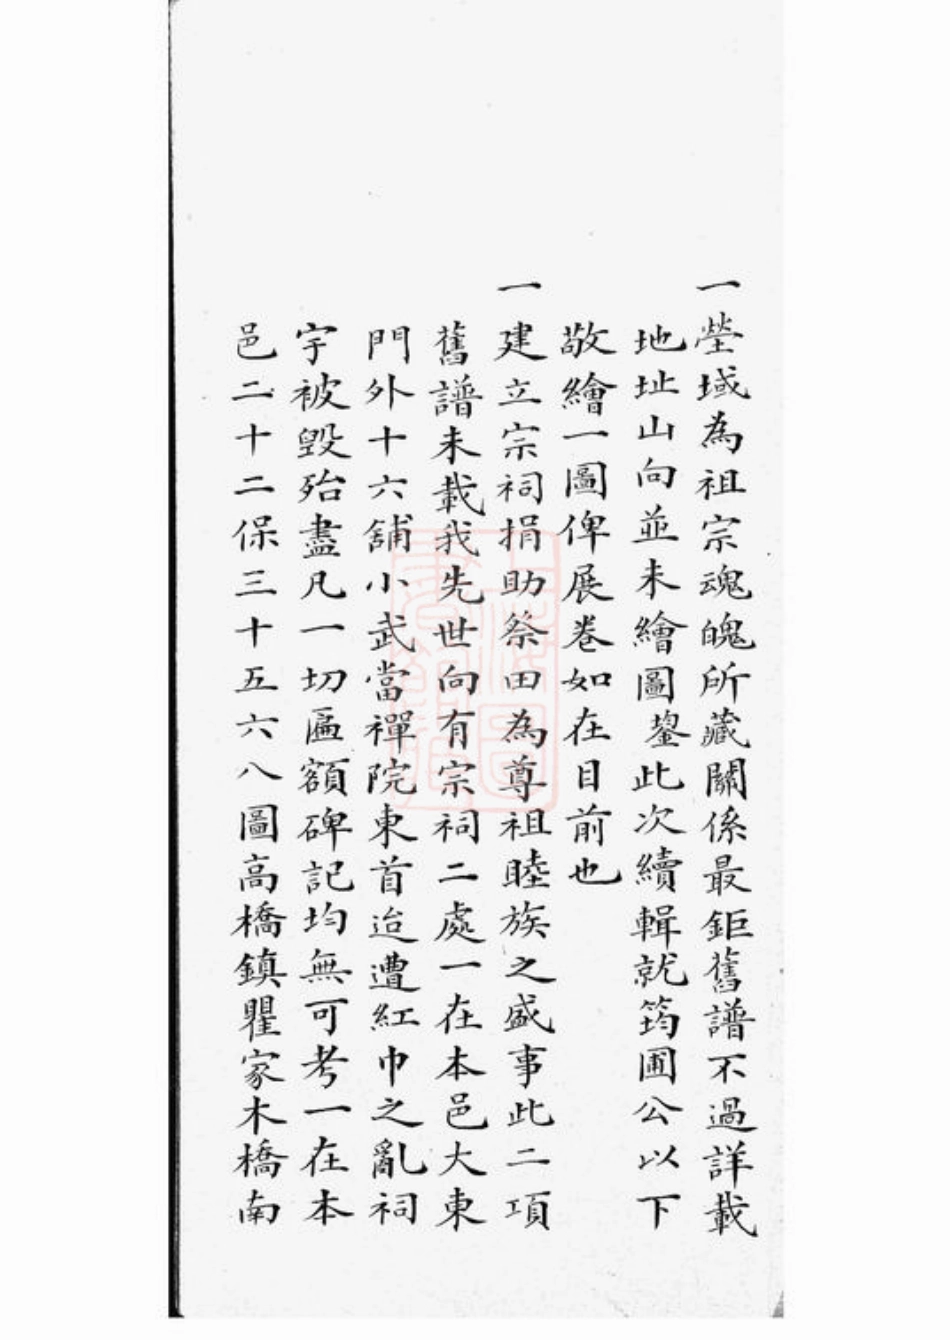 一塋域為祖宗魂魄所藏關係最鉅舊譜不過詳載
地址山向並未繪圖鋆此次續輯就筠圃公以下
敬繪一圖俾展卷如在目前也
一建立宗祠捐助祭田為尊祖睦族之盛事此二項
舊譜未載我先世向有宗祠二處一在本邑大東
門外十六舖小武當禪院東首迨遭紅巾之亂祠
宇被毀殆盡凡一切匾額碑記均無可考一在本
邑二十二保三十五六八圖高橋鎮瞿家木橋南